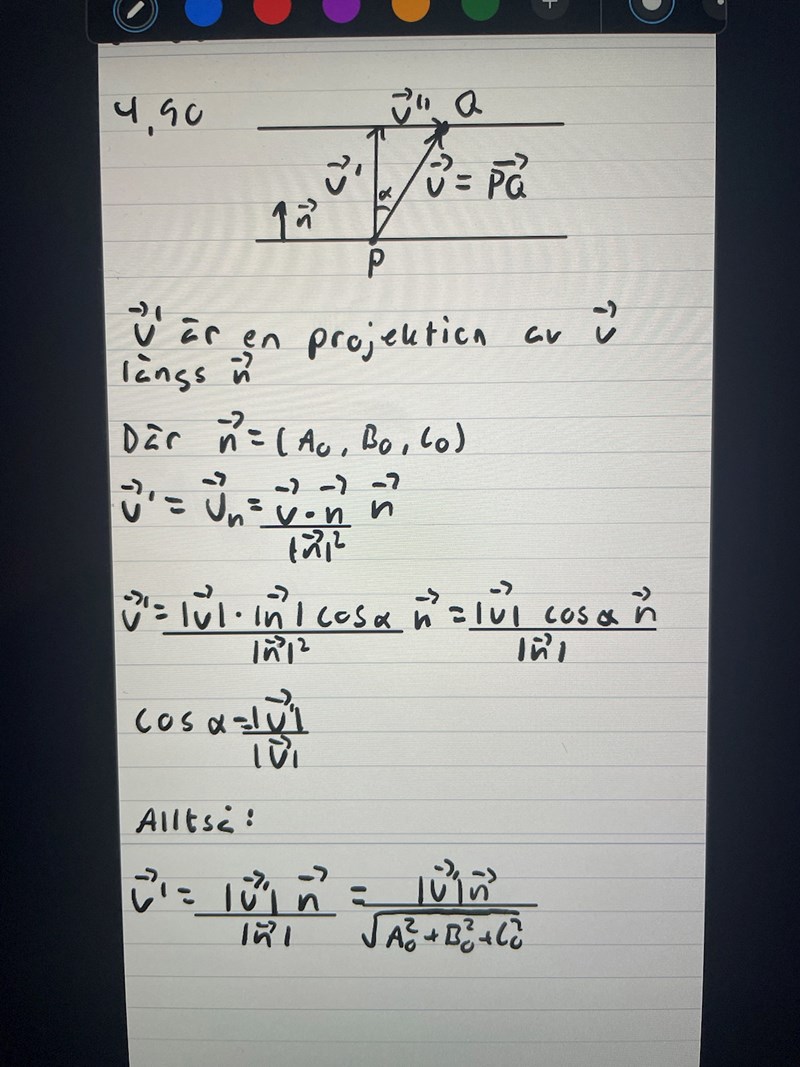 4,90
v⃗'' Q
v⃗' α v⃗ = PQ⃗
n⃗
P
v⃗' är en projektion av v⃗
längs n⃗
Där n⃗ = (A₀, B₀, C₀)
v⃗' = v⃗ₙ = (v⃗ · n⃗)/|n⃗|² n⃗
v⃗' = (|v⃗| · |n⃗| cos α)/|n⃗|² n⃗ = (|v⃗| cos α n⃗)/|n⃗|
cos α = |v⃗'|/|v⃗|
Alltså:
v⃗' = (|v⃗'| n⃗)/|n⃗| = (|v⃗'| n⃗)/√(A₀² + B₀² + C₀²)